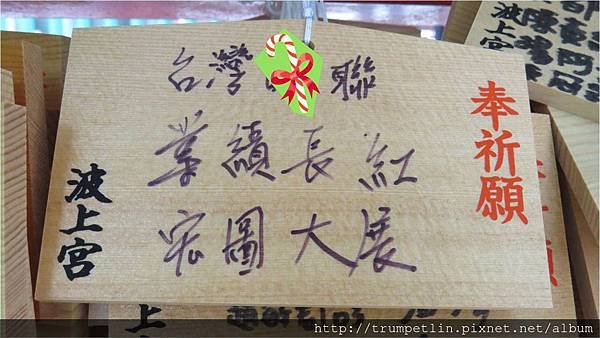 奉祈願
台灣 聯
業績長紅
宏圖大展
波上宮
波上宮
上
http://trumpetlin.pixnet.net/album